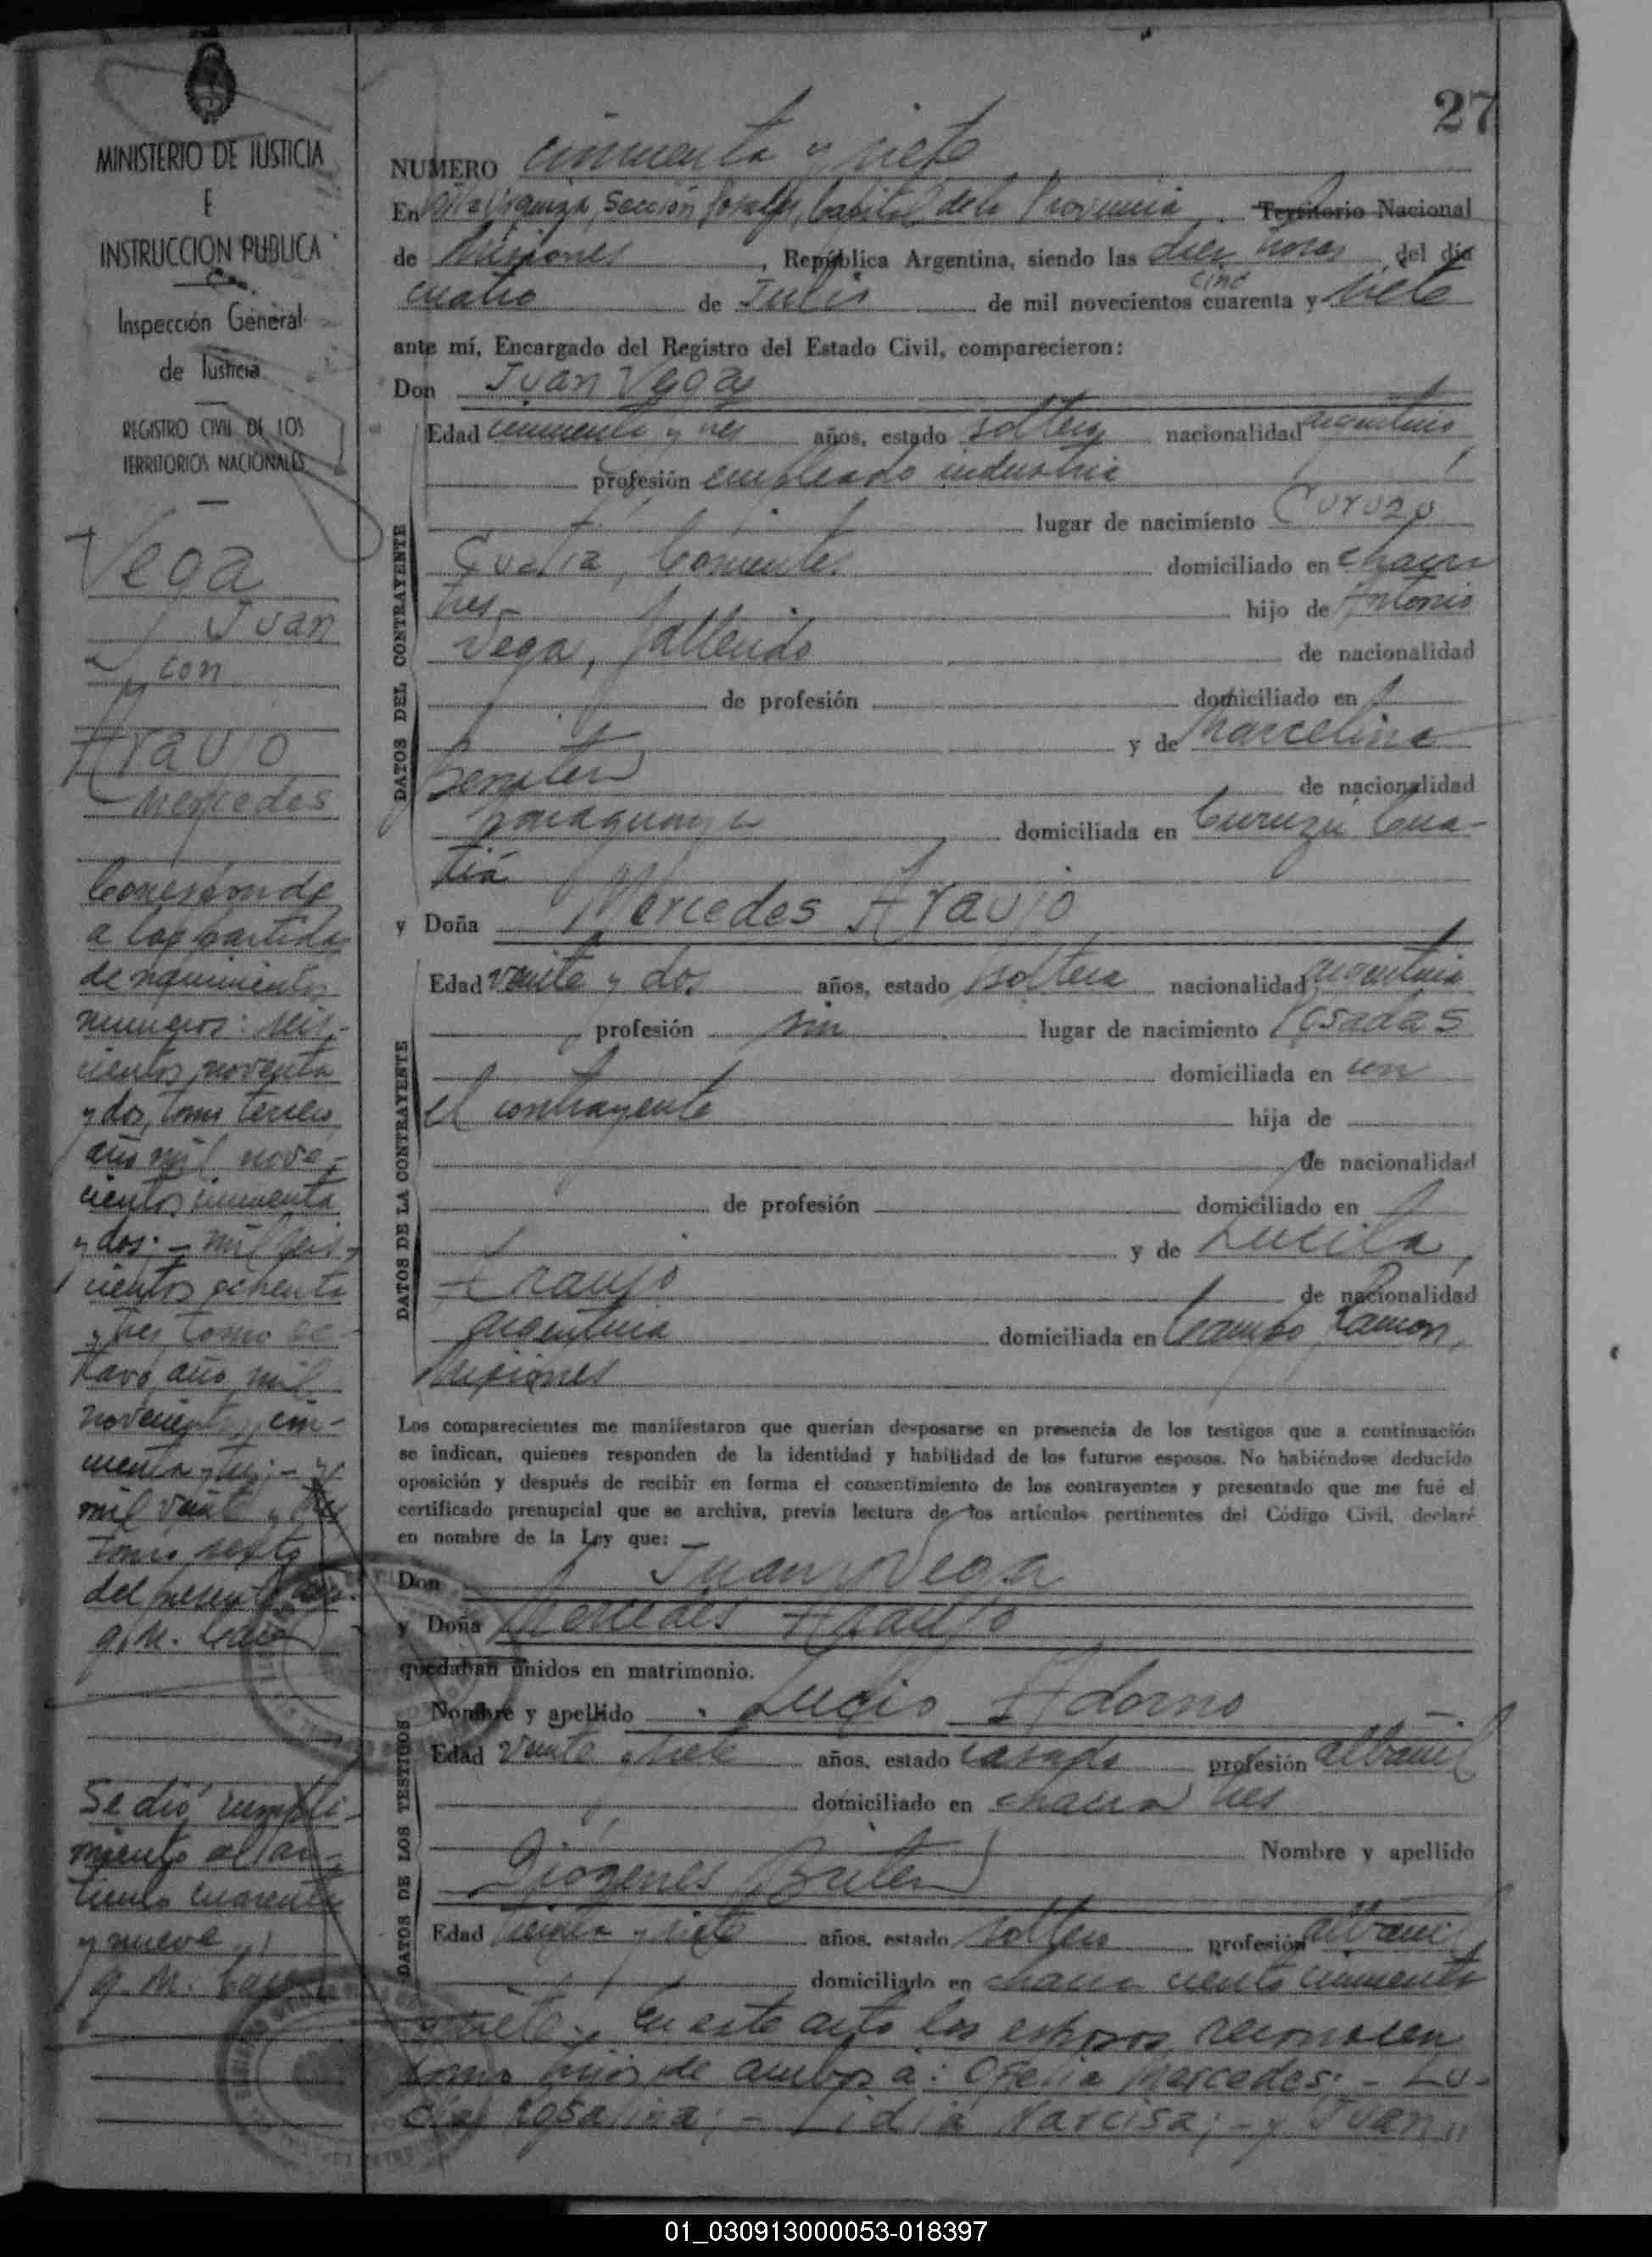 27
MINISTERIO DE JUSTICIA
E
INSTRUCCION PUBLICA
Inspección General
de Justicia
REGISTRO CIVIL DE LOS
TERRITORIOS NACIONALES
Vega
Juan
con
Araujo
Mercedes
a las partidas
de nacimientos
numeros: seis-
cientos noventa
y dos, tomo tercero,
año mil nove-
cientos cincuenta
y dos; - mil seis-
cientos ochenta
y tres, tomo oc-
tavo, año mil
novecientos cin-
cuenta y tres; - y
mil veinte y tres
tomo sexto
del presente año.
Se dió cumpli-
miento al ar-
tículo cuarenta
y nueve
NUMERO cincuenta y siete
En Villa Urquiza, Sección Posadas, Capital de la Provincia Territorio Nacional
de Misiones, República Argentina, siendo las diez horas del día
cuatro de Julio de mil novecientos cuarenta y siete
cinc
ante mí, Encargado del Registro del Estado Civil, comparecieron:
Don Juan Vega
DATOS DEL CONTRAYENTE
Edad cincuenta y tres años, estado soltero nacionalidad argentino
profesión empleado industria
lugar de nacimiento Curuzú
Cuatiá, Corrientes domiciliado en chacra
tres- hijo de Antonio
Vega, fallecido de nacionalidad
de profesión domiciliado en
y de Marcelina
Benitez de nacionalidad
paraguaya domiciliada en Curuzú Cua-
tiá
y Doña Mercedes Araujo
DATOS DE LA CONTRAYENTE
Edad veinte y dos años, estado soltera nacionalidad argentina
profesión sin lugar de nacimiento Posadas
domiciliada en con
el contrayente hija de
de nacionalidad
de profesión domiciliado en
y de Lucila
Araujo de nacionalidad
argentina domiciliada en Campo Ramon,
Misiones
Los comparecientes me manifestaron que querían desposarse en presencia de los testigos que a continuación
se indican, quienes responden de la identidad y habilidad de los futuros esposos. No habiéndose deducido
oposición y después de recibir en forma el consentimiento de los contrayentes y presentado que me fué el
certificado prenupcial que se archiva, previa lectura de los artículos pertinentes del Código Civil, declaré
en nombre de la Ley que:
Don Juan Vega
y Doña Mercedes Araujo
quedaban unidos en matrimonio.
DATOS DE LOS TESTIGOS
Nombre y apellido Lucio Adorno
Edad veinte y siete años, estado casado profesión albañil
domiciliado en chacra tres
Nombre y apellido
Diógenes Britez
Edad treinta y siete años, estado soltero profesión albañil
domiciliado en chacra ciento cincuenta
y siete. En este acto los esposos reconocen
como hijos de ambos a: Ofelia Mercedes; - Lu-
cia Rosalina; - Lidia Narcisa; - y Juan
01_030913000053-018397